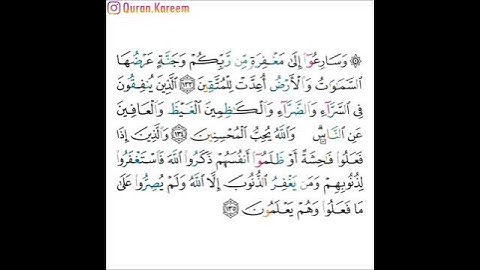 Quran.Kareem
۞ وَسَارِعُوٓا۟ إِلَىٰ مَغْفِرَةٍ مِّن رَّبِّكُمْ وَجَنَّةٍ عَرْضُهَا
ٱلسَّمَـٰوَٰتُ وَٱلْأَرْضُ أُعِدَّتْ لِلْمُتَّقِينَ ١٣٣ ٱلَّذِينَ يُنفِقُونَ
فِى ٱلسَّرَّآءِ وَٱلضَّرَّآءِ وَٱلْكَـٰظِمِينَ ٱلْغَيْظَ وَٱلْعَافِينَ
عَنِ ٱلنَّاسِ ۗ وَٱللَّهُ يُحِبُّ ٱلْمُحْسِنِينَ ١٣٤ وَٱلَّذِينَ إِذَا
فَعَلُوا۟ فَـٰحِشَةً أَوْ ظَلَمُوٓا۟ أَنفُسَهُمْ ذَكَرُوا۟ ٱللَّهَ فَٱسْتَغْفَرُوا۟
لِذُنُوبِهِمْ وَمَن يَغْفِرُ ٱلذُّنُوبَ إِلَّا ٱللَّهُ وَلَمْ يُصِرُّوا۟ عَلَىٰ
مَا فَعَلُوا۟ وَهُمْ يَعْلَمُونَ ١٣٥